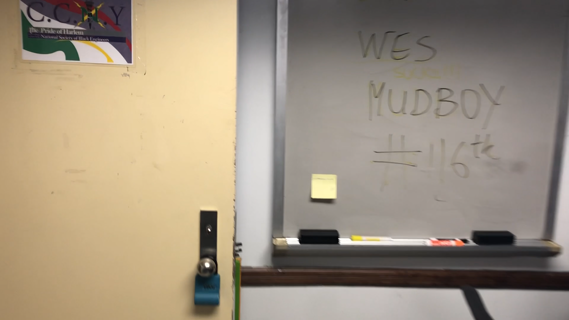 C.C.N.Y
the Pride of Harlem
National Society of Black Engineers
WES
MUDBOY
#116th